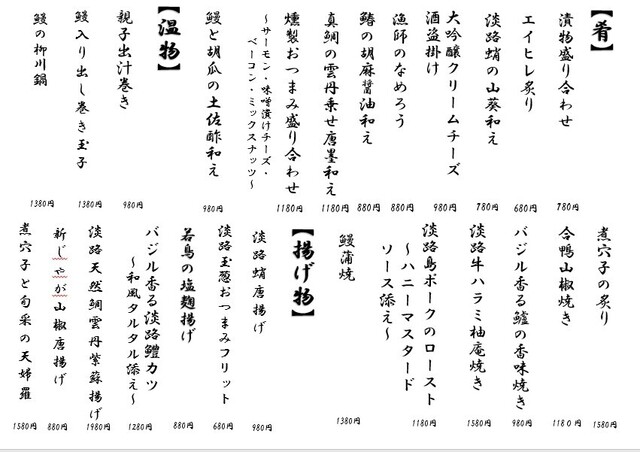 【肴】
漬物盛り合わせ
780円
エイヒレ炙り
680円
淡路蛸の山葵和え
780円
大吟醸クリームチーズ
酒盗掛け
980円
漁師のなめろう
880円
鰆の胡麻醤油和え
880円
真鯛の雲丹乗せ唐墨和え
1180円
燻製おつまみ盛り合わせ
~サーモン・味噌漬けチーズ・
ベーコン・ミックスナッツ~
1180円
鰻と胡瓜の土佐酢和え
980円
【温物】
親子出汁巻き
980円
鰻入り出し巻き玉子
1380円
鰻の柳川鍋
1380円
煮穴子の炙り
1580円
合鴨山椒焼き
1180円
バジル香る鱸の香味焼き
980円
淡路牛ハラミ柚庵焼き
1580円
淡路島ポークのロースト
~ハニーマスタード
ソース添え~
1180円
鰻蒲焼
1380円
【揚げ物】
淡路蛸唐揚げ
980円
淡路玉葱おつまみフリット
680円
若鳥の塩麹揚げ
880円
バジル香る淡路鱧カツ
~和風タルタル添え~
1280円
淡路天然鯛雲丹紫蘇揚げ
1980円
新じゃが山椒唐揚げ
880円
煮穴子と旬采の天婦羅
1580円